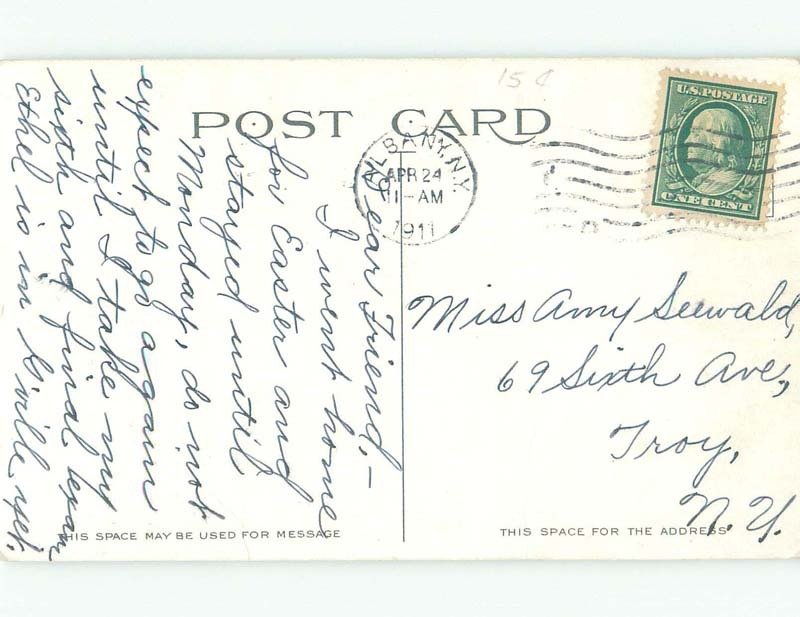 15¢
POST CARD
U.S. POSTAGE
ONE CENT
ALBANY, N.Y.
APR 24
11-AM
1911
Dear Friend,—
I went home
for Easter and
stayed until
Monday, do not
expect to go again
until I take my
sixth and final exam,
Ethel is in yet.
Miss Amy Seewald,
69 Sixth Ave,
Troy,
N.Y.
THIS SPACE MAY BE USED FOR MESSAGE
THIS SPACE FOR THE ADDRESS